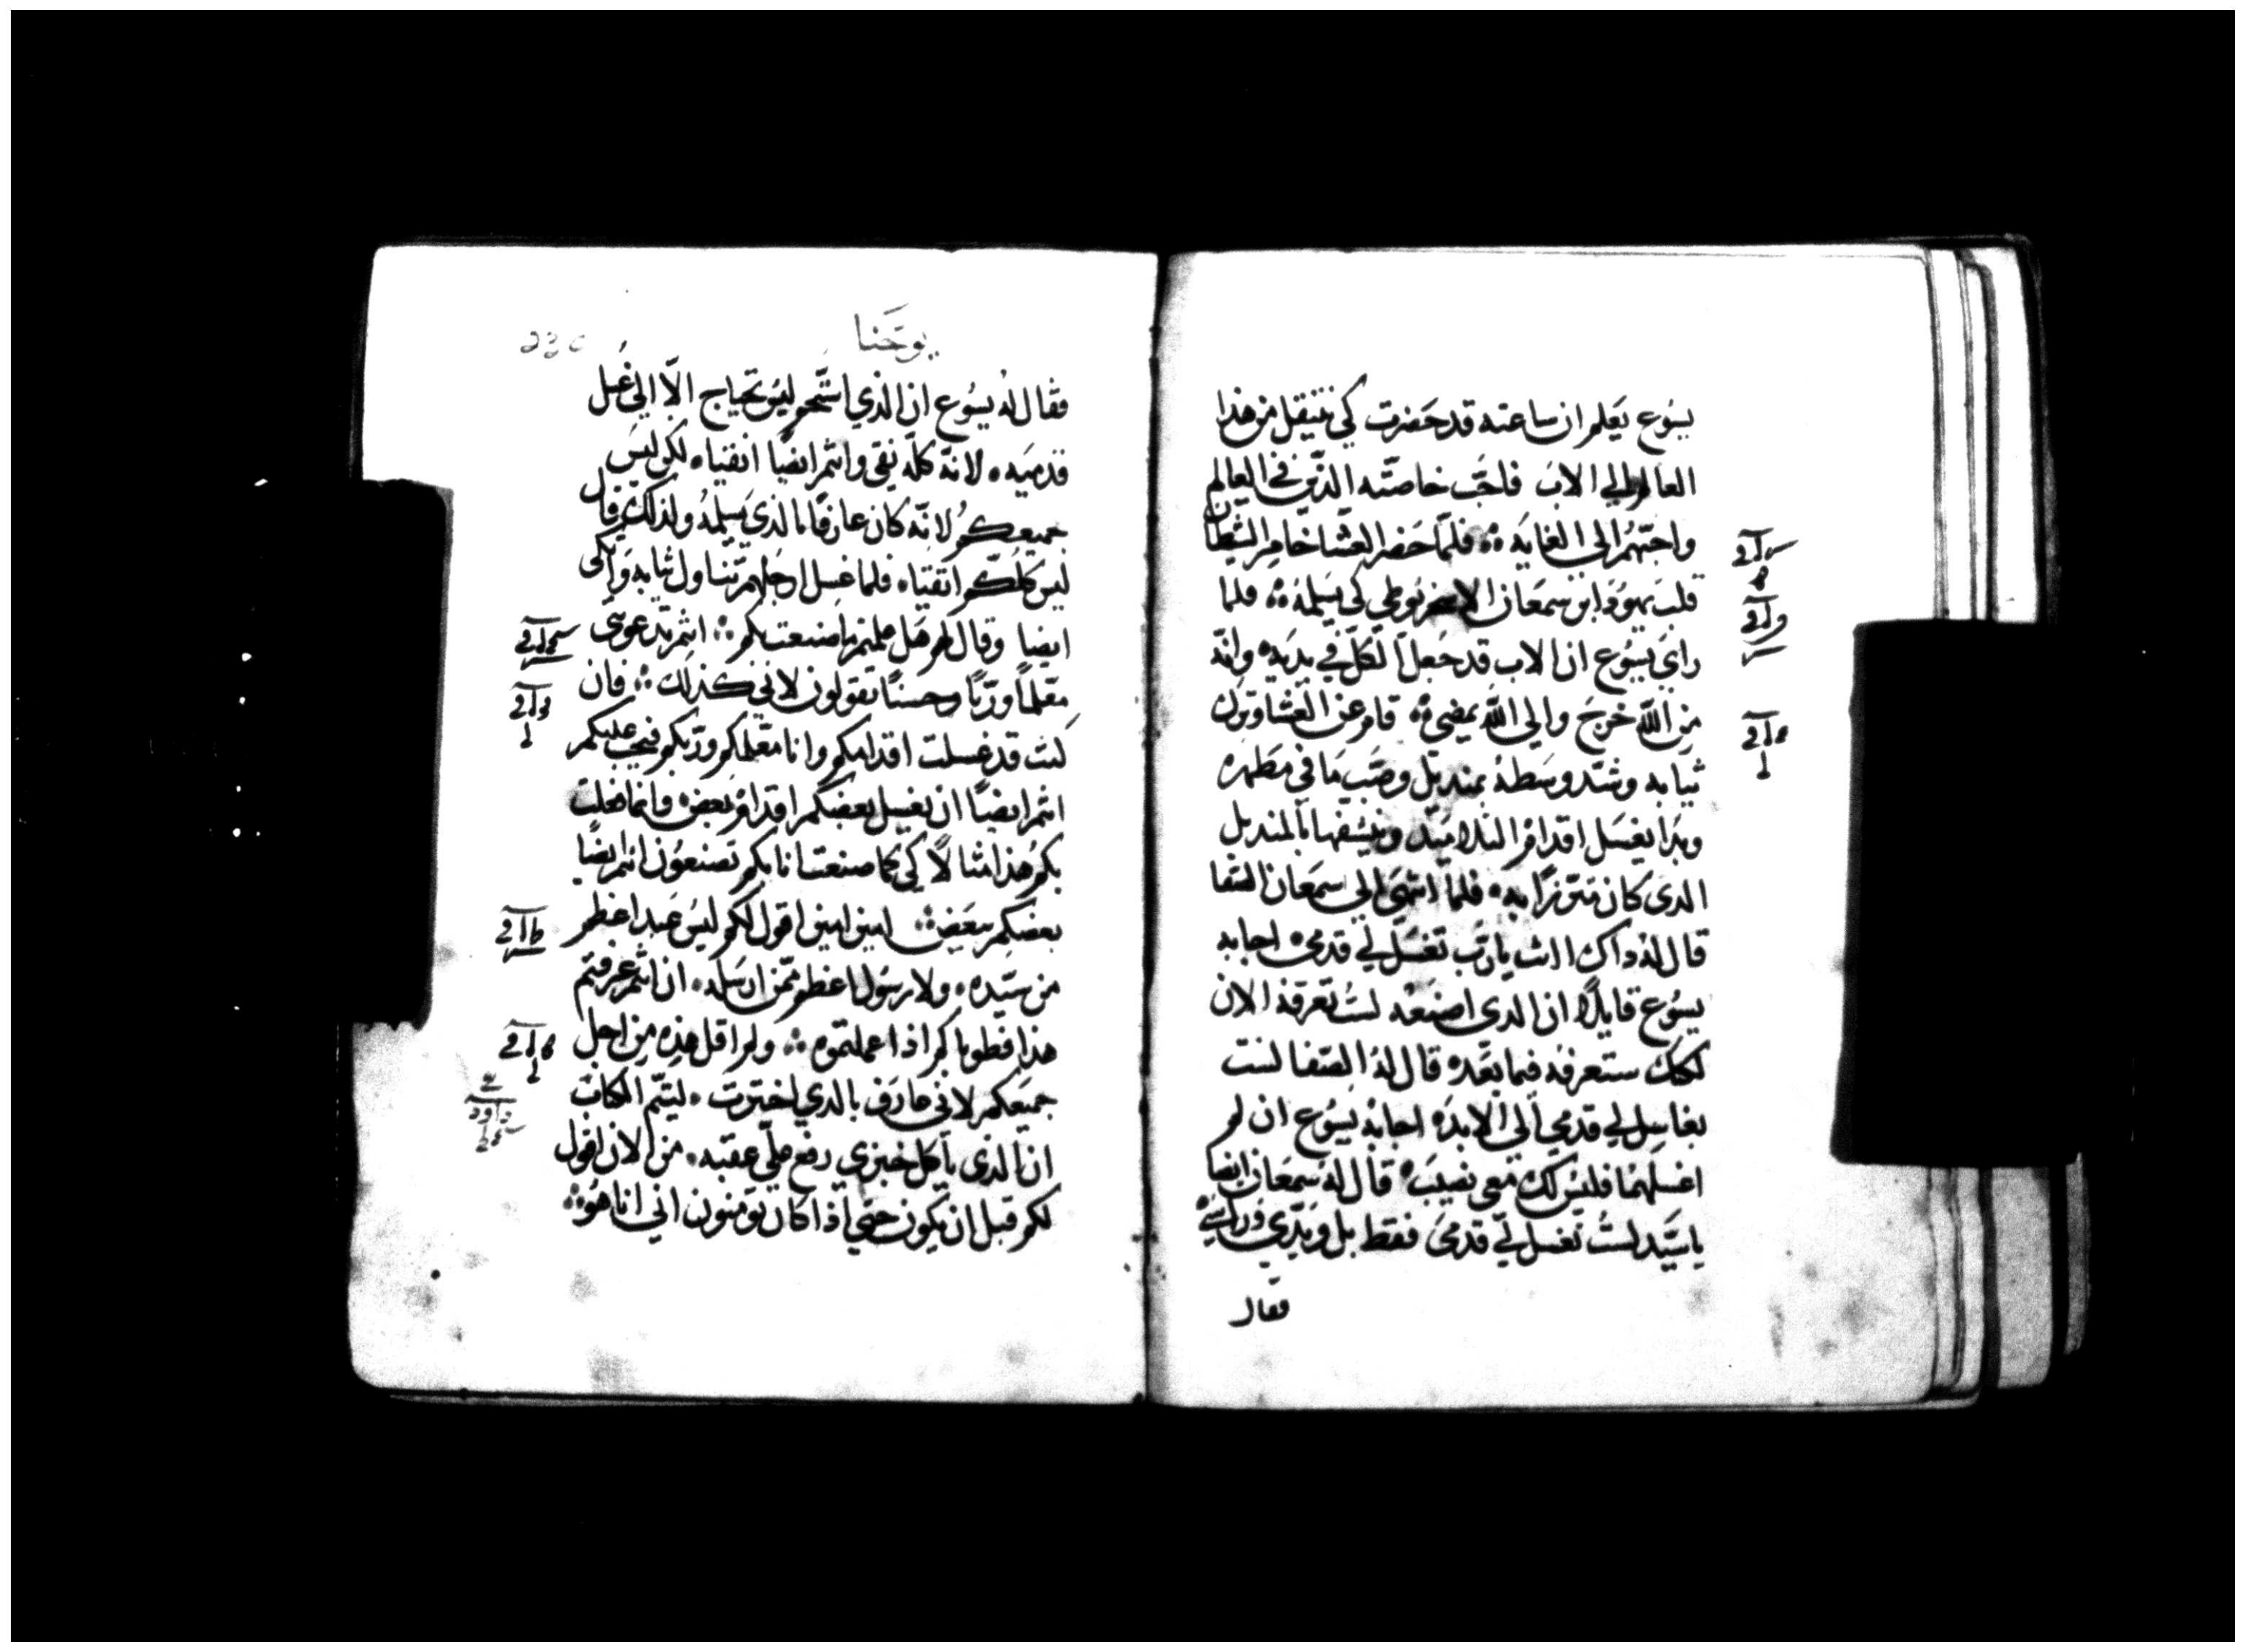 يسوع يعلم ان ساعته قد حضرت كي ينتقل من هذا
العالم الي الاب فاحب خاصته الذين في العالم
واحبهم الى الغايه فلما حضر العشا خامر الشيطان
قلب يهودا ابن سمعان الاسخريوطي كي يسلمه فلما
راي يسوع ان الاب قد جعل الكل في يديه وانه
من الله خرج والي الله يمضي قام عن العشا وترك
ثيابه وشد وسطه بمنديل وصب ما في مطهره
وبدا يغسل اقدام التلاميد وينشفها بالمنديل
الدى كان متزرًا به فلما انتهى الي سمعان الصفا
قال له ذاك اانت يارب تغسل لي قدمى اجابه
يسوع قايلًا ان الدى اصنعه لست تعرفه الان
لكنك ستعرفه فيما بعده قال له الصفا لست
بغاسل لي قدمي الي الابد اجابه يسوع ان لم
اغسلهما فليس لك معي نصيب قال له سمعان ايضا
ياسيد لست تغسل لي قدمى فقط بل ويدي وراسي
فقال
يوحنا
فقال له يسوع ان الذي استحم ليس يحتاج الّا الي غسل
قدميه لانه كله نقي وانتم ايضًا انقياه لكن ليس
جميعكم لانه كان عارفًا بالدي يسلمه ولذلك قال
ليس كلكم انقياه فلما غسل ارجلهم تناول ثيابه واتكى
ايضا وقال لهم هل علمتم ما صنعت بكم انتم تدعوني
معلمًا وربًا وحسنًا تقولون لاني كذلك فان
كنت قد غسلت اقدامكم وانا معلمكم وربكم فيجب عليكم
انتم ايضًا ان يغسل بعضكم اقدام بعض وانما جعلت
بكم هذا مثالًا كي كما صنعت انا بكم تصنعون انتم ايضًا
بعضكم ببعض امين امين اقول لكم ليس عبد اعظم
من سيده ولا رسول اعظم ممن ارسله ان انتم عرفتم
هذا فطوباكم اذا عملتموه ولم اقل هذه من اجل
جميعكم لاني عارف بالدي اخترت ليتم الكتاب
ان الذى ياكل خبزي رفع علي عقبه من الان اقول
لكم قبل ان يكون حتي اذا كان تومنون اني انا هو